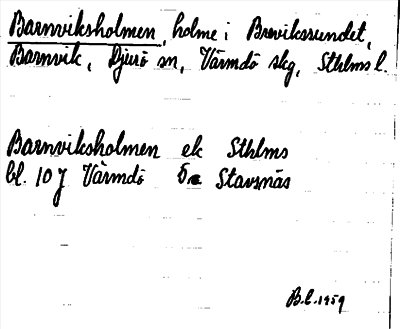 Barnviksholmen, holme i Brevikssundet,
Barnvik, Djurö sn, Värmdö skg, Sthlms l.
Barnviksholmen ek Sthlms
bl. 10 J Värmdö 5 e Stavsnäs
B.l. 1959